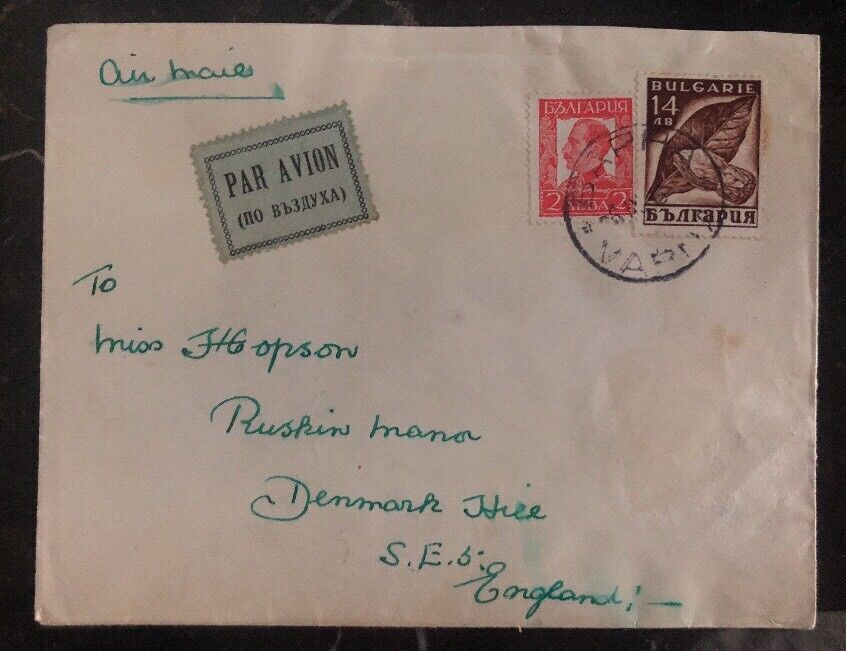 Air Mail
PAR AVION
(ПО ВЪЗДУХА)
БЪЛГАРИЯ
2 ЛЕВА 2
BULGARIE
14
ЛВ
БЪЛГАРИЯ
ВАРНА
To
Miss F Hopson
Ruskin Manor
Denmark Hill
S.E.5.
England:—